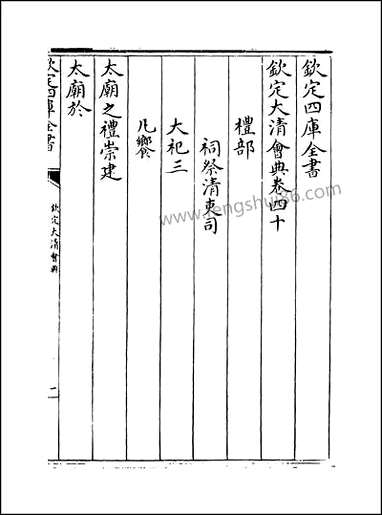 欽定四庫全書
欽定大清會典卷四十
禮部
祠祭清吏司
大祀三
凡饗
太廟之禮崇建
太廟於
欽定四庫全書
欽定大清會典
www.fengshui86.com